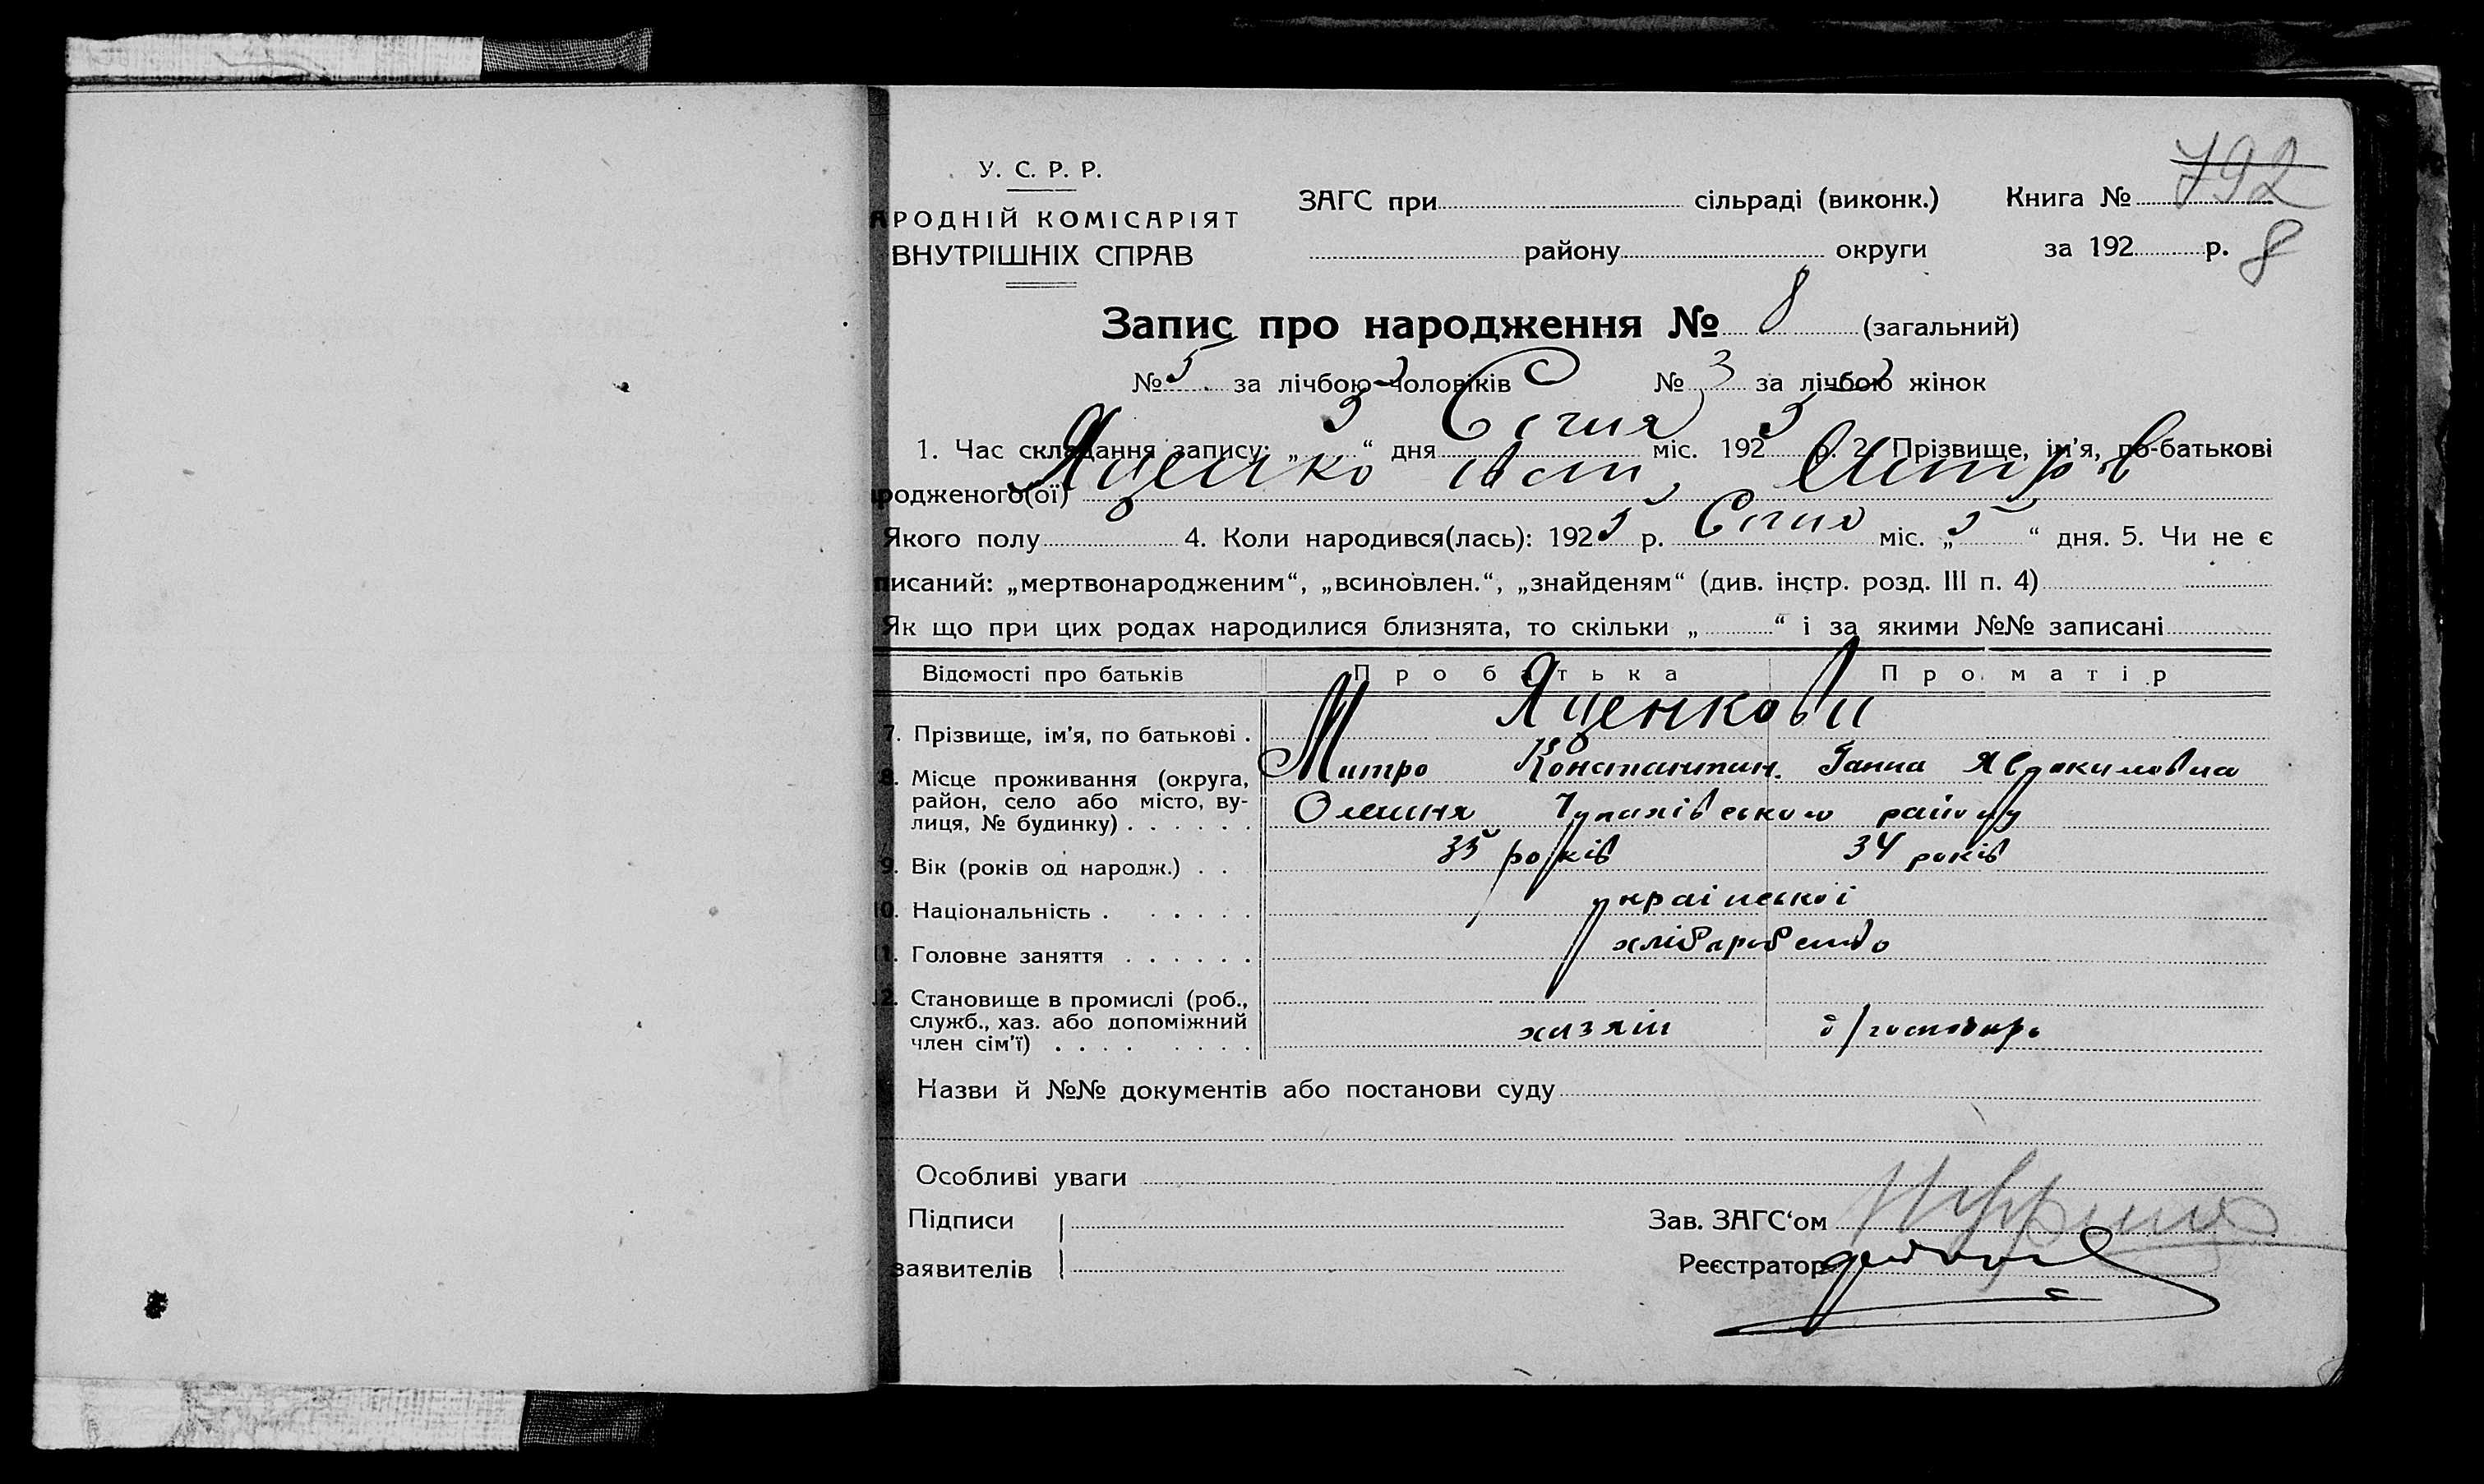 У. С. Р. Р.
АРОДНІЙ КОМІСАРІЯТ
ВНУТРІШНІХ СПРАВ
ЗАГС при сільраді (виконк.) Книга № 792
району округи за 192 р. 8
Запис про народження № 8 (загальний)
№ 5 за лічбою чоловіків № 3 за лічбою жінок
1. Час складання запису: „5“ дня Січня міс. 1925 р. 2. Прізвище, ім’я, по-батькові
родженого(ої) Яценко
Якого полу 4. Коли народився(лась): 1925 р. Січня міс. „5“ дня. 5. Чи не є
писаний: „мертвонародженим“, „всиновлен.“, „знайденям“ (див. інстр. розд. III п. 4)
Як що при цих родах народилися близнята, то скільки „ “ і за якими №№ записані
Відомості про батьків Про батька Про матір
7. Прізвище, ім’я, по батькові . Яценкови
Митро Константин. Ганна
8. Місце проживання (округа,
район, село або місто, ву-
лиця, № будинку) . . . . . . Олешня району
9. Вік (років од народж.) . . 35 років 34 років
10. Національність . . . . . . української
11. Головне заняття . . . . . . хліборобство
12. Становище в промислі (роб.,
служб., хаз. або допоміжний
член сім’ї) . . . . . . . . хазяін д/господарь
Назви й №№ документів або постанови суду
Особливі уваги
Підписи
заявителів
Зав. ЗАГС‘ом
Реєстратор